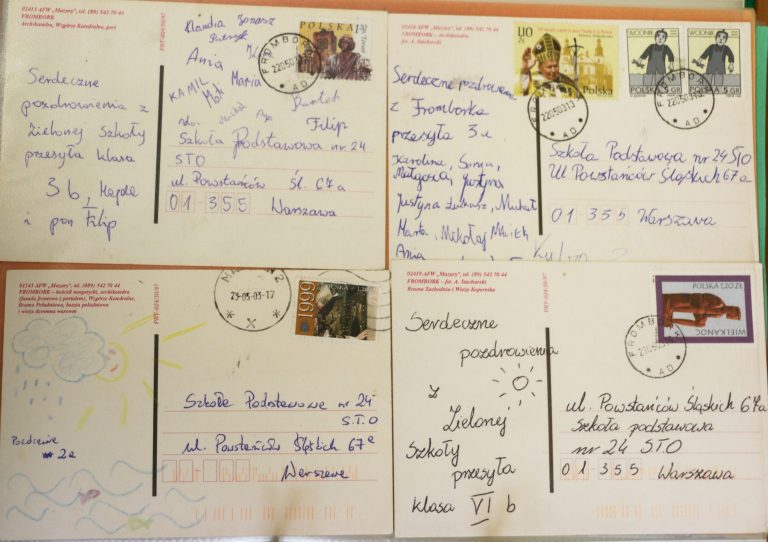 02415 AFW "Mazury", tel. (89) 542 70 44
FROMBORK
Archikatedra, Wzgórze Katedralne, port
PRT-024/50/97
Serdeczne
pozdrowienia z
Zielonej Szkoły
przesyła klasa
3 b
i pan Filip
Klaudia Jonasz
Patryk
Ania
KAMIL
Mati
Maria
Bartek
Filip
POLSKA
FROMBORK
AD
Szkoła Podstawowa nr 24
STO
ul. Powstańców Śl. 67a
01-355 Warszawa
02419 AFW "Mazury", tel. (89) 542 70 44
FROMBORK - Archikatedra
fot. A. Stachurski
Serdeczne pozdrowienia
z Fromborka
przesyła 3a
Karolina, Sonia,
Małgosia, Justyna
Justyna Łukasz, Michał
Marta, Mikołaj
Ania
1,10
ZŁ
Polska
WODNIK
POLSKA 5 GR
WODNIK
POLSKA 5 GR
FROMBORK
AD
FROMBORK
AD
Szkoła Podstawowa nr 24 STO
Ul Powstańców Śląskich 67a
01-355 Warszawa
01143 AFW "Mazury", tel. (089) 542 70 44
FROMBORK - kościół
(fasada frontowa z portalem), Wzgórze Katedralne,
Brama Południowa, baszta południowa
i wieża
PRT-024/50/97
2
23-05-03-17
1999
POLSKA
Szkoła Podstawowa nr 24
S.T.O
ul. Powstańców Śląskich 67a
Warszawa
2a
02410 AFW "Mazury", tel. (89) 542 70 44
FROMBORK - fot. A. Stachurski
Brama Zachodnia i Wieża Kopernika
PRT-024/50/97
Serdeczne
pozdrowienia
z
Zielonej
Szkoły
przesyła
klasa VI b
POLSKA 1,20 ZŁ
WIELKANOC
FROMBORK
AD
ul. Powstańców Śląskich 67a
Szkoła podstawowa
nr 24 STO
01 355 Warszawa